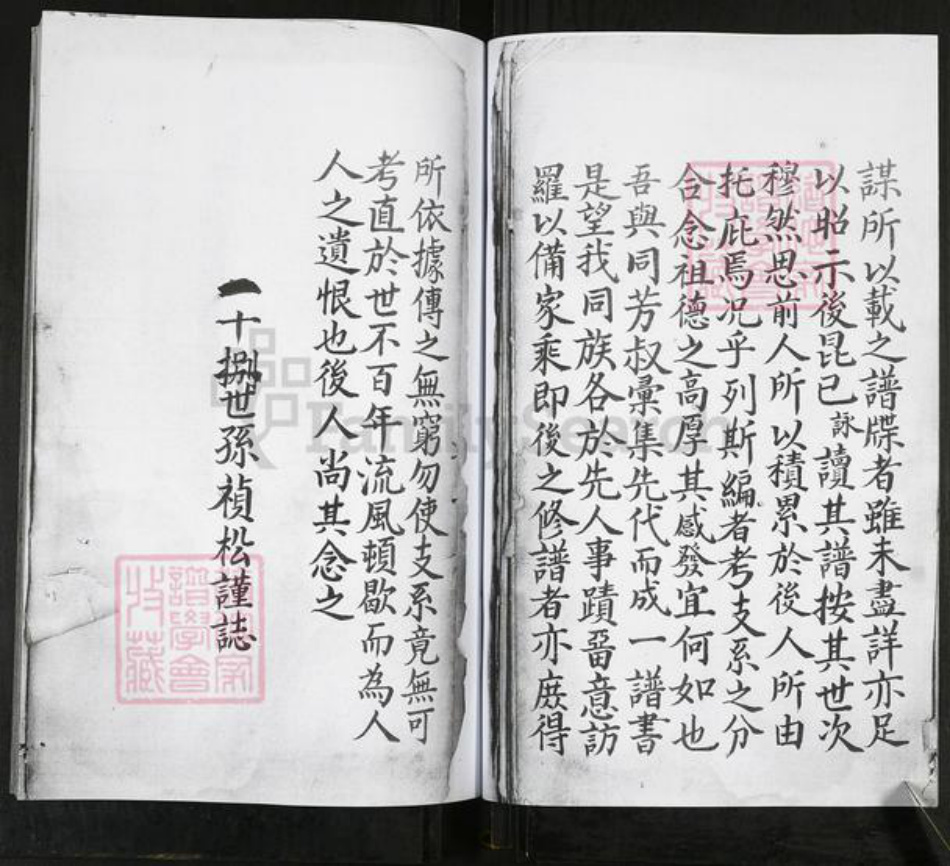 謀所以載之譜牒者雖未盡詳亦足
以昭示後昆已詠讀其譜按其世次
穆然思前人所以積累於後人所由
托庇焉况乎列斯編者考支系之分
合念祖德之高厚其感發宜何如也
吾與同芳叔彙集先代而成一譜書
是望我同族各於先人事蹟畱意訪
羅以備家乘即後之修譜者亦庶得
所依據傳之無窮勿使支系竟無可
考直於世不百年流風頓歇而為人
人之遺恨也後人尚其念之
一十捌世孫禎松謹誌
FamilySearch